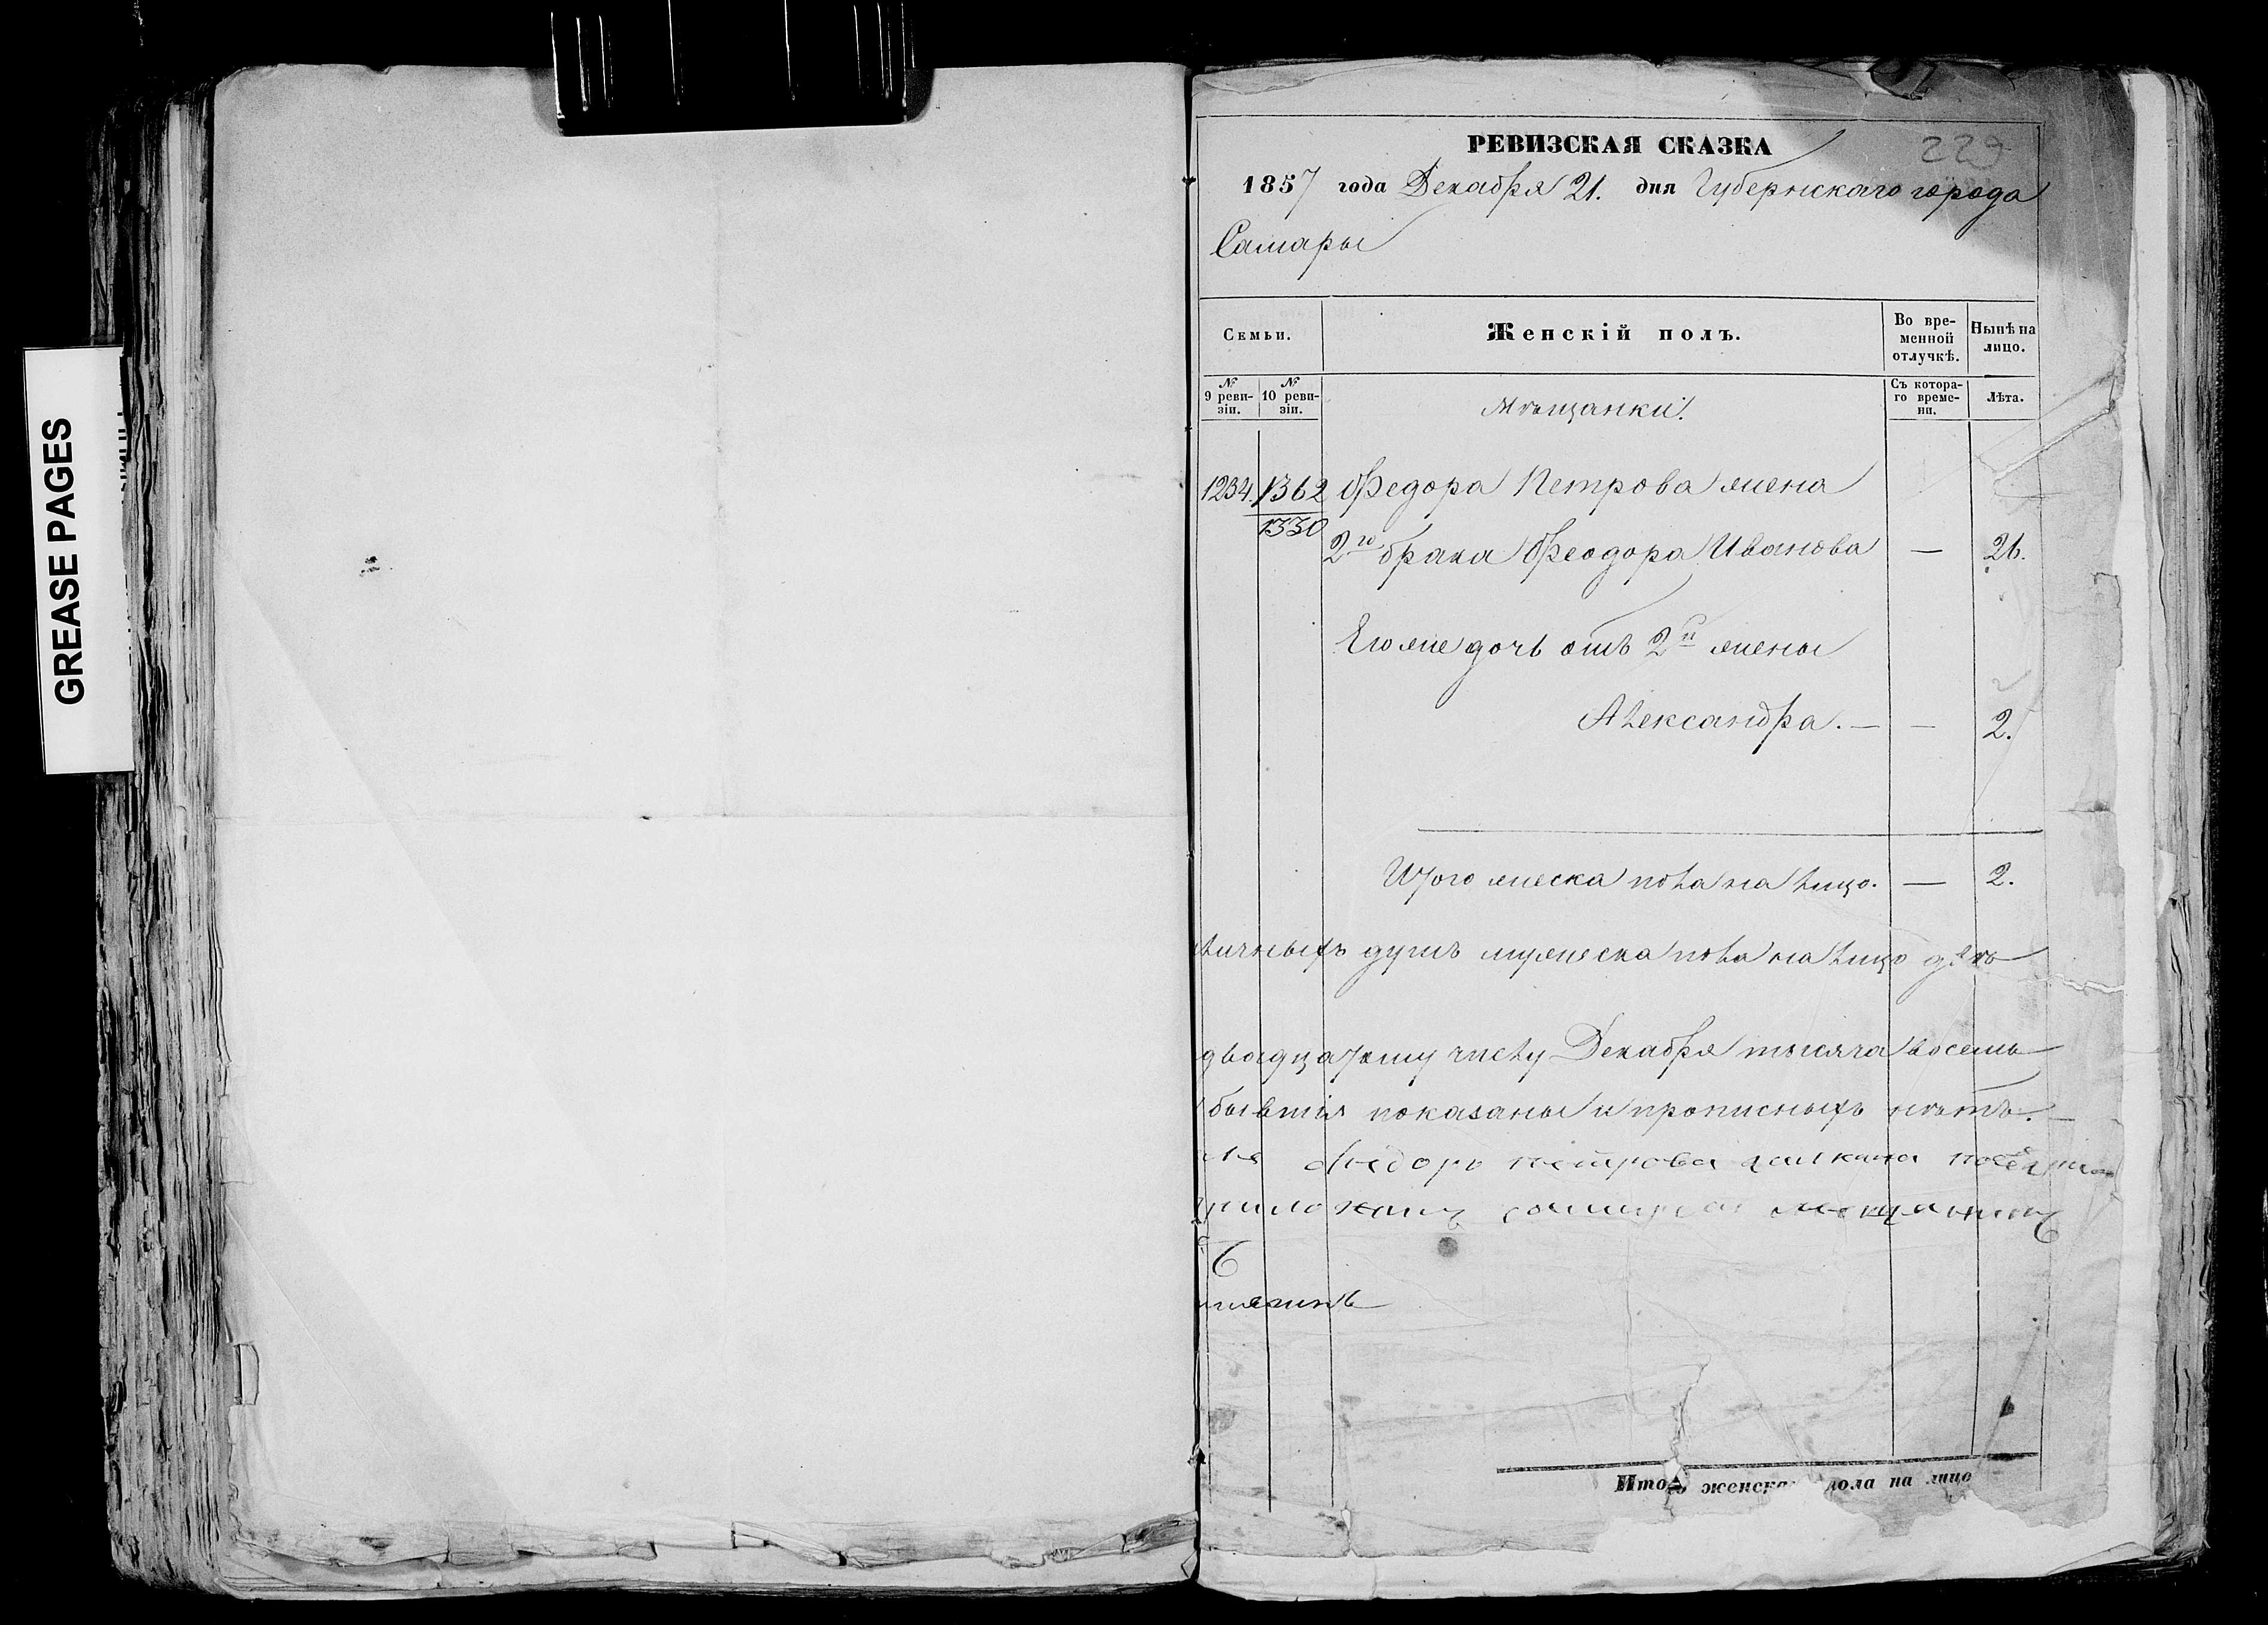 GREASE PAGES
229
РЕВИЗСКАЯ СКАЗКА
1857 года Декабря 21. дня Губернскаго города
Самары
Семьи.
Женскій полъ.
Во вре-
менной
отлучкѣ.
Нынѣ на
лицо.
№
9 реви-
зіи.
№
10 реви-
зіи.
Мѣщанки.
Съ котора-
го време-
ни.
Лѣта.
1234. 1362 Федора Петрова жена
1330
2го брака Феодора Иванова — 26.
Его же дочь отъ 2й жены
Александра. — — 2.
Итого женска пола на лицо. — 2.
личныхъ душъ мужеска пола на лицо
двадцатому числу Декабря тысяча восемь
бывшія показаны и прописныхъ нѣтъ. —
Федоръ Петрова
мещанинъ
Итого женска пола на лицо